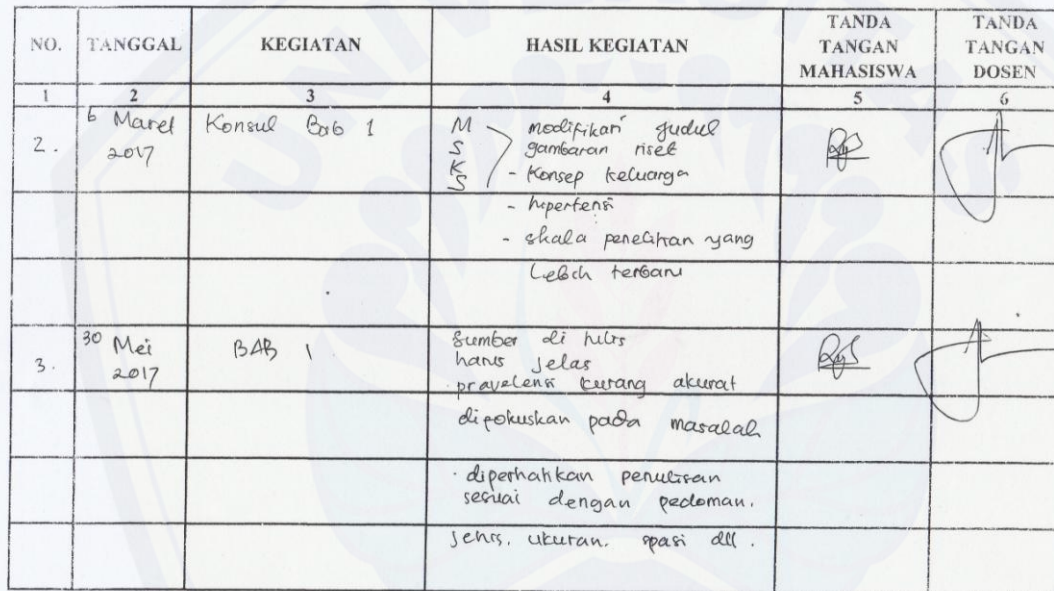 NO. TANGGAL KEGIATAN HASIL KEGIATAN TANDA TANGAN MAHASISWA TANDA TANGAN DOSEN
1 2 3 4 5 6
2. 6 Maret 2017 Konsul Bab 1 M S K S modifikasi judul
gambaran riset
- Konsep keluarga
- hipertensi
- skala penelitian yang
Lebih terbaru
3. 30 Mei 2017 BAB 1 Sumber di tulis
harus jelas
pravelensi kurang akurat
difokuskan pada masalah
- diperhatikan penulisan
sesuai dengan pedoman.
Jenis. ukuran. spasi dll.